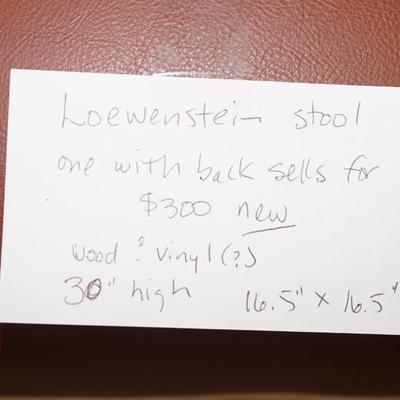 Loewenstein stool
one with back sells for
$300 new
wood & vinyl (?)
30" high 16.5" x 16.5"